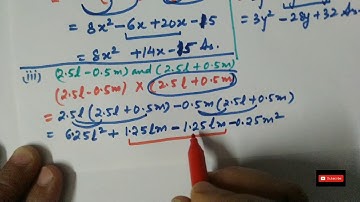 = 8x² - 6x + 20x - 15
= 8x² + 14x - 15 Ans.
= 3y² - 28y + 32 Ans.
(iii) (2.5l - 0.5m) and (2.5l + 0.5m)
(2.5l - 0.5m) × (2.5l + 0.5m)
= 2.5l (2.5l + 0.5m) - 0.5m (2.5l + 0.5m)
= 6.25l² + 1.25lm - 1.25lm - 0.25m²